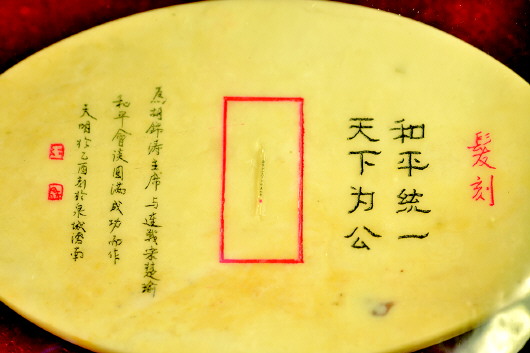 髮刻
和平统一
天下为公
为胡锦涛主席与连战宋楚瑜
和平会谈圆满成功而作
天明於乙酉刻於泉城濟南